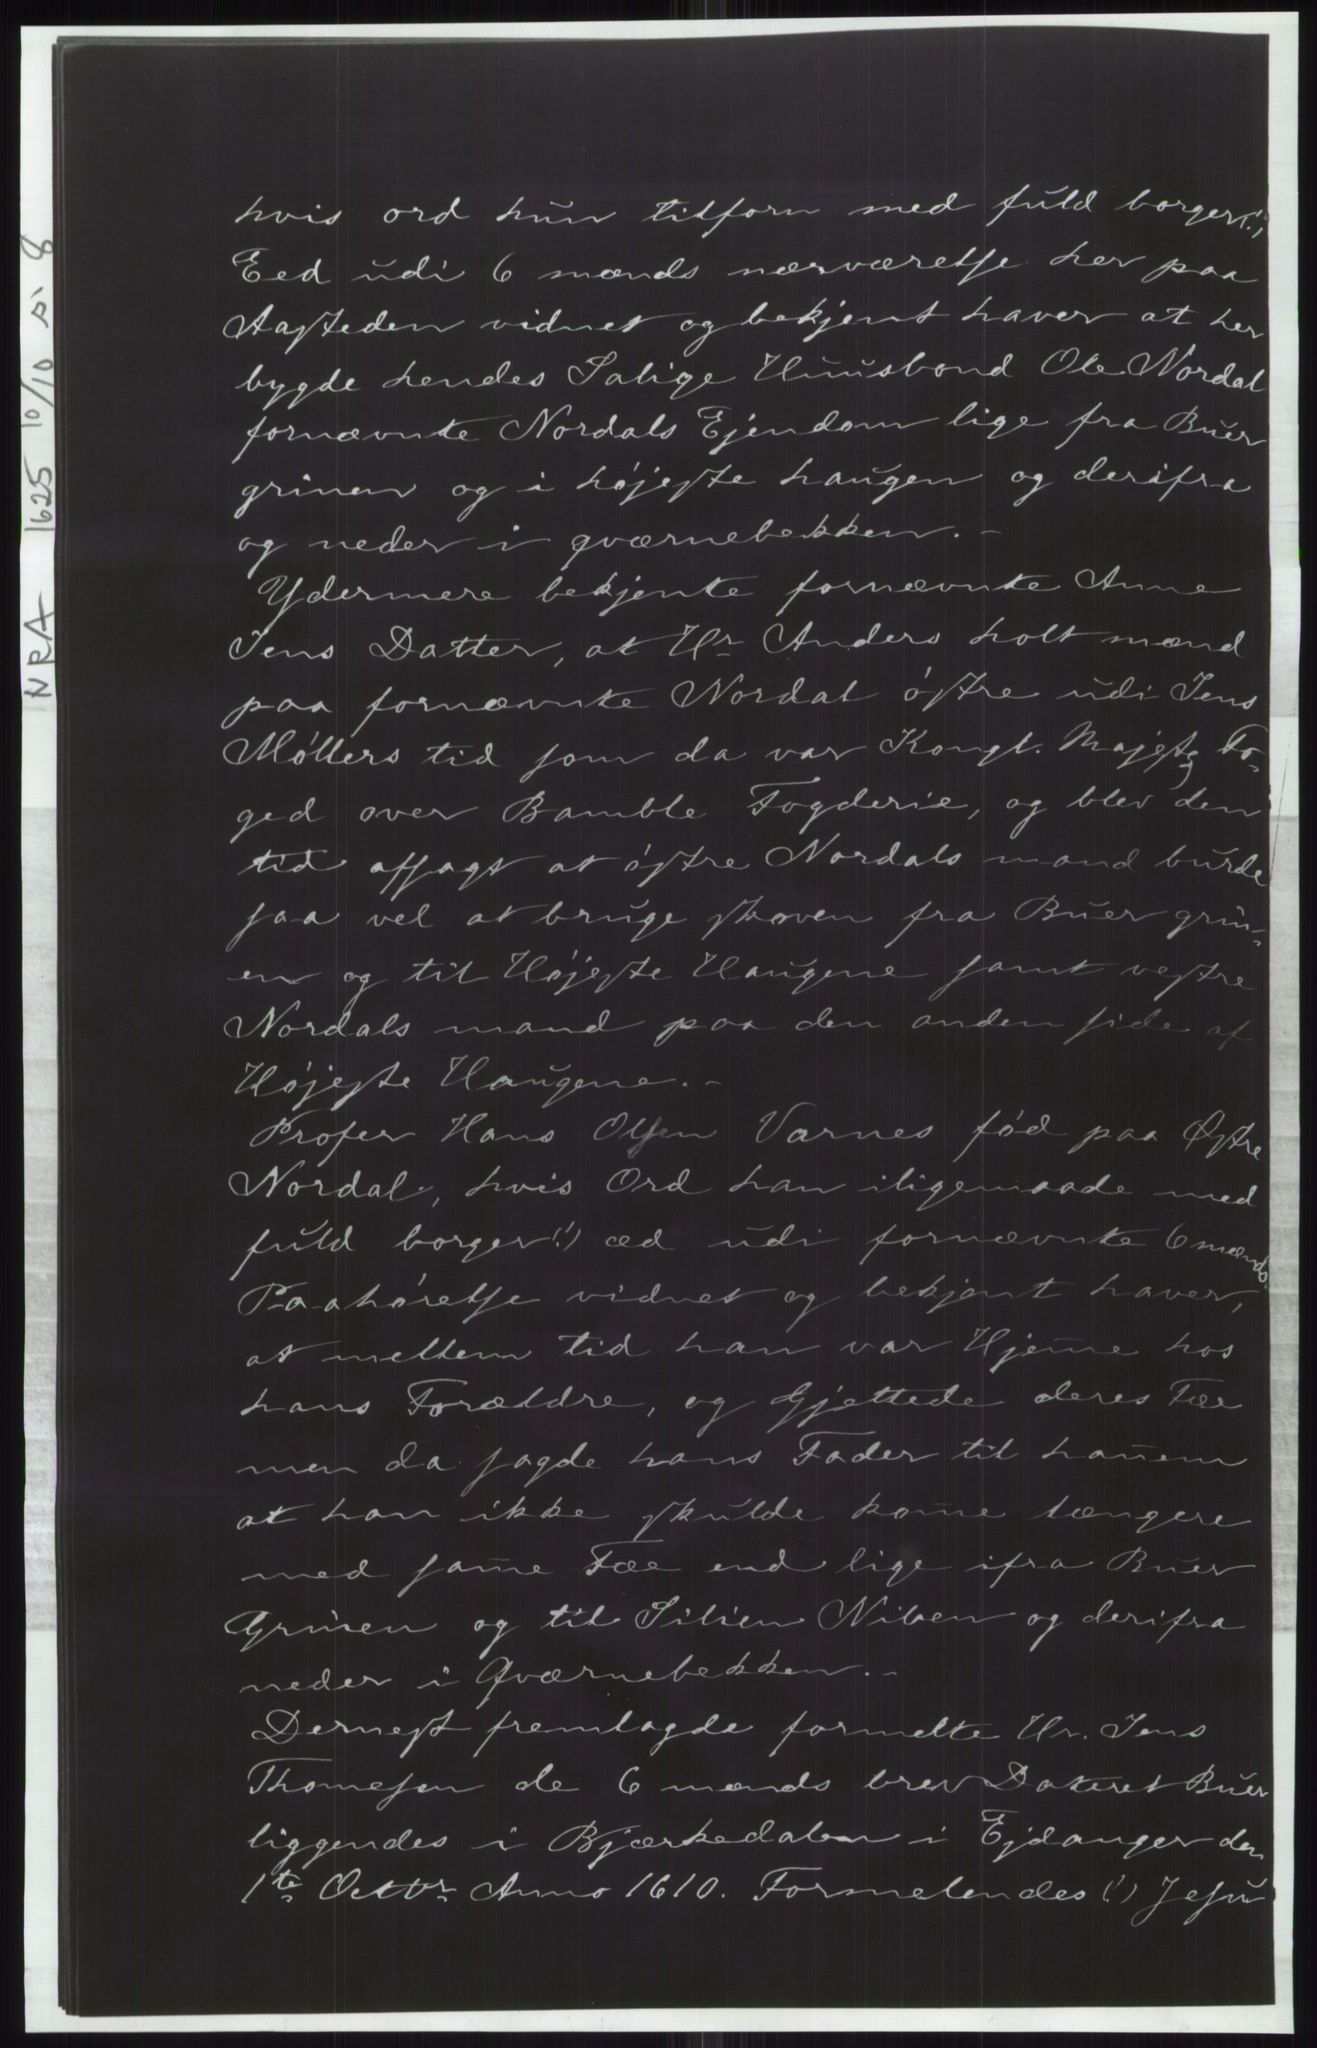 NRA 1625 10/10 s. 8
hvis ord hun tilforn med fuld borger(!)
Eed udi 6 mænds nærværelse her paa
Aasteden vidnet og bekjent haver at her
bygde hendes Salige Huusbond Ole Nordal
fornævnte Nordals Ejendom lige fra Buer
grinen og i højeste haugen og derifra
og neder i qværnebekken.–
Ydermere bekjente fornævnte Anne
Jens Datter, at Hr Anders holt mænd
paa fornævnte Nordal østre udi Jens
Møllers tid som da var Kongl. Majests Fo-
ged over Bamble Fogderie, og blev den
tid afsagt at østre Nordals mand burde
saa vel at bruge skoven fra Buer grin-
en og til Højeste Haugene samt vestre
Nordals mand paa den anden side af
Højeste Haugene.–
Profer Hans Olsen Varnes fød paa Østre
Nordal, hvis Ord han iligemaade med
fuld borger(!) æd udi fornævnte 6 mænds
Paahørelse vidnet og bekjent haver,
at mellem tid han var Hjem̄e hos
hans Forældre, og Gjettede deres Fæe
men da sagde hans Fader til han̄em
at han ikke skulde kom̄e længere
med sam̄e Fæe end lige ifra Buer
Grinen og til Silien Niben og derifra
neder i Qværnebekken.–
Dernest fremlagde formelte Hr. Jens
Thomesen de 6 mænds brev Dateret Buer
liggendes i Bjærkedalen i Ejdanger den
1te Octbr Anno 1610. Formelendes (!) Jesu